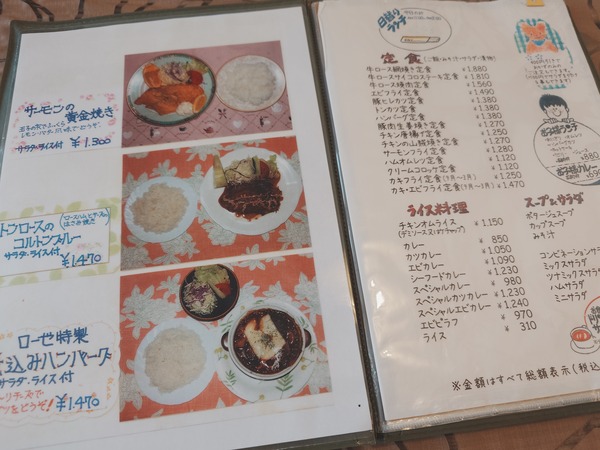 サーモンの
黄金焼き
サラダ・ライス付 ¥1,300
トンロースの
コルドンブルー
サラダ・ライス付
¥1,470
ローゼ特製
込みハンバーグ
サラダ・ライス付
¥1,470
日替り
ランチ
定食(ご飯・みそ汁・サラダ・漬物)
牛ロース網焼き定食 ¥1,880
牛ロースサイコロステーキ定食 ¥1,810
牛ロース焼肉定食 ¥1,560
エビフライ定食 ¥1,490
豚ヒレカツ定食 ¥1,380
トンカツ定食 ¥1,380
ハンバーグ定食 ¥1,380
豚肉生姜焼き定食 ¥1,270
チキン唐揚げ定食 ¥1,250
チキンの山賊焼き定食 ¥1,270
サーモンフライ定食 ¥1,280
ハムオムレツ定食 ¥1,120
クリームコロッケ定食 ¥1,120
カキフライ定食
カキ・エビフライ定食 ¥1,470
ライス料理
チキンオムライス ¥1,150
カレー ¥850
カツカレー ¥1,050
エビカレー ¥1,090
シーフードカレー ¥1,230
スペシャルカレー ¥980
スペシャルカツカレー ¥1,230
スペシャルエビカレー ¥1,240
エビピラフ ¥970
ライス ¥310
スープ&サラダ
ポタージュスープ
カップスープ
みそ汁
コンビネーションサラダ
ミックスサラダ
ツナミックスサラダ
ハムサラダ
ミニサラダ
※金額はすべて総額表示(税込